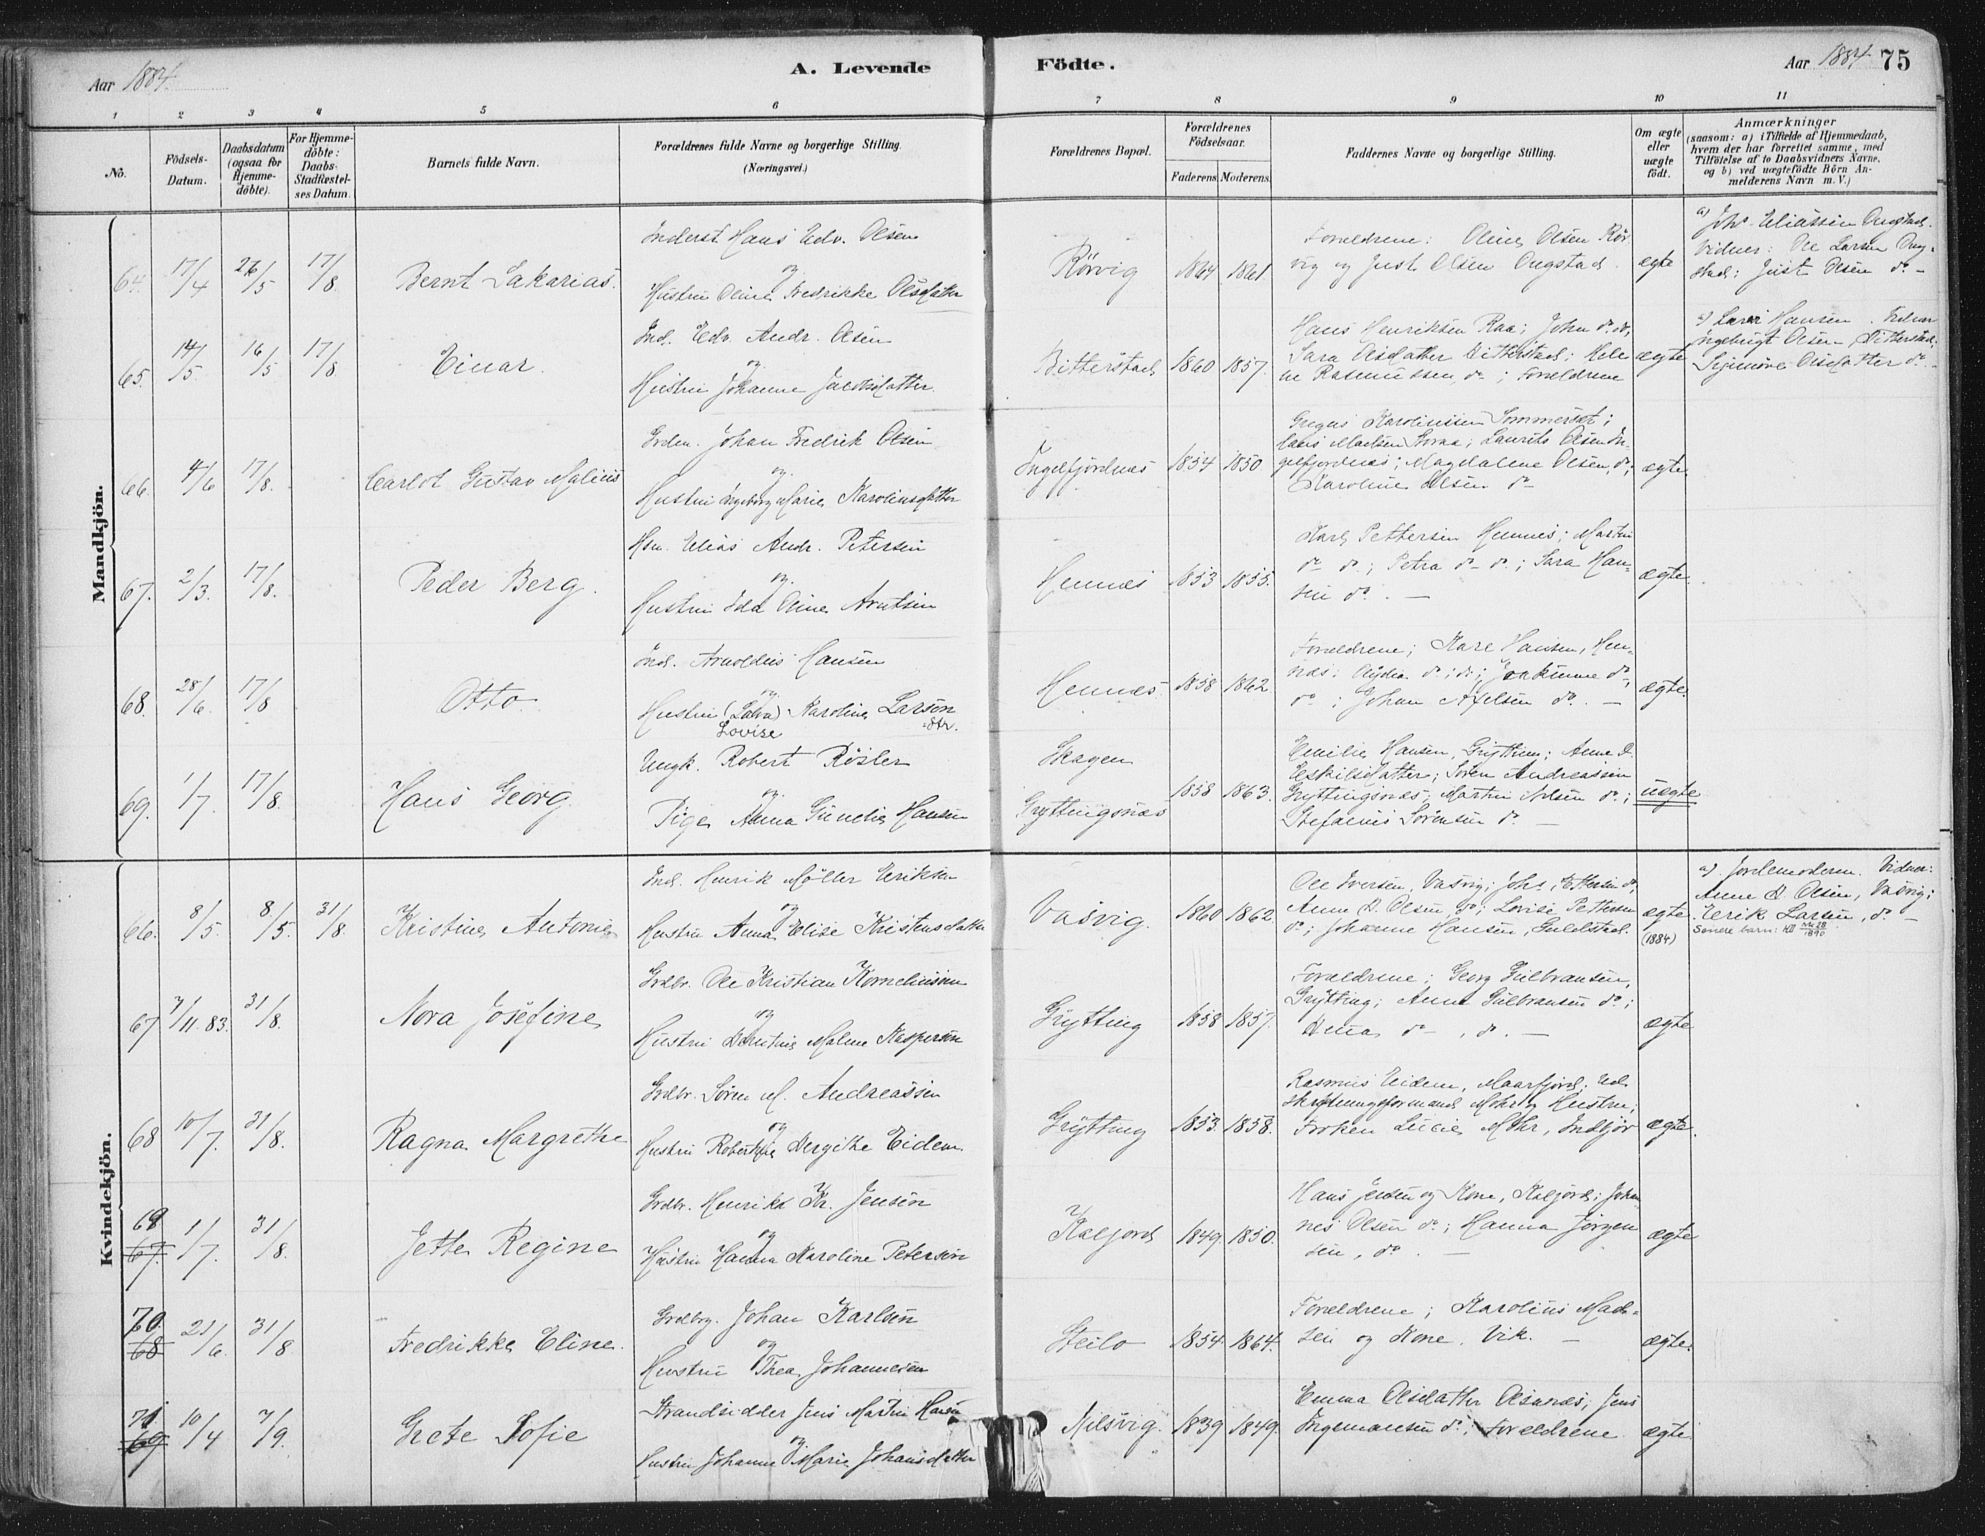 Aar 1884.
A. Levende Födte.
Aar 1884 75
1 2 3 4 5 6 7 8 9 10 11
No.
Födsels-Datum.
Daabsdatum (ogsaa for Hjemme-döbte).
For Hjemme-döbte: Daabs-Stadfæstel-ses Datum.
Barnets fulde Navn.
Forældrenes fulde Navne og borgerlige Stilling.
(Næringsvei.)
Forældrenes Bopæl.
Forældrenes Födselsaar.
Faderens. Moderens.
Faddernes Navne og borgerlige Stilling.
Om ægte eller uægte födt.
Anmærkninger
(saasom: a) i Tilfælde af Hjemmedaab,
hvem der har forrettet samme, med
Tilföielse af to Daabsvidners Navne,
og b) ved uægtefödte Börn An-
melderens Navn m. V.)
Mandkjön.
64. 17/4 26/5 17/8 Bernt Sakarias.
Inderst Hans Edv. Olsen
og
Hustru Oline Fredrikke Olsdatter
Rörvig 1864 1861
Forældrene: Oline Olsen Rör-
vig og Just Olsen Ongstad.
ægte
a) Johs Eliassen Ongstad.
Vidner: Ole Larsen Ong-
stad; Just Olsen do –
65. 14/5 16/5 17/8 Einar.
Ind. Edv. Andr. Olsen
og
Hustru Johanne Jakobsdatter
Bitterstad 1860 1857.
Hans Henriksen Raa; John do do,
Sara Olsdatter Bitterstad; Hele-
ne Rasmussen do; Forældrene
ægte
a) Hansen. Vidner
Ingebrigt Olsen Bitterstad;
Olsdatter do –
66. 4/6 17/8. Carlot Gustav Malius
Grdm. Johan Fredrik Olsen
og
Hustru Ingeborg Marie Karolinsdatter
Ingelfjordnæs 1854 1850
Gregus Karoliussen Sommerset;
Madsen; Laurits Olsen In-
gelfjordnæs; Magdalene Olsen, do;
Karoline Olsen do
ægte.
67. 2/3. 17/8. Peder Berg.
Hsm. Elias Andr. Petersen
og
Hustru Ida Oline Arntsen
Hennes 1853 1855.
Karl Pettersen Hennes; Martin
do do; Petra do do; Sara Han-
sen do. –
ægte.
68. 28/6 17/8 Otto
Ind. Arnoldus Hansen
og
Hustru (Lava) Karoline Larsen
Lovise dtr.
Hennes 1858 1862
Forældrene; Kare Hansen, Hen-
nes; do; do; Joakimme do,
do; Johan Axelsen do. –
ægte.
69. 1/7. 17/8. Hans Georg
Ungk. Robert Rösler
og
Pige Anna Gunelie Hansen
Skagen
Gryttingsnæs 1858 1863.
Emilie Hansen, Gryttin; Anne D.
Eskilsdatter; Sören Andreassen
Gryttingsnæs; Martin Nilsen do;
Stefanus Sörensen do. –
uægte
Kvindekjön.
66. 8/5. 8/5. 31/8. Kristine Antonie
Ind. Henrik Möller Eriksen
og
Hustru Anna Elise Kristensdatter
Vasvig. 1860 1862
Ole Iversen, Vasvig; Johs. do,
Anne D. Olsen do; Lovise Pettersen
do; Johanne Hansen, Guldstad.
ægte
(1884)
a) Jordemoderen. Vidner:
Anne D. Olsen, Vasvig;
Erik Larsen, do –
Senere barn: Nr. 28 1890
67 7/11. 83. 31/8. Nora Josefine
Grdbr. Ole Kristian Korneliussen
og
Hustru Dorthe Malene Kaspersen
Grytting 1858 1857.
Forældrene; Georg Gulbransen,
Grytting; Anne Gulbransen do;
Dina do –, do. –
ægte
68 10/7. 31/8. Ragna Margrethe
Grdbr. Sören M. Andreassen
og
Hustru Bergithe Eidem
Grytting 1853. 1858.
Rasmus Eidem, Maarfjord; Ud-
skiftningsformand Mohr og Hustru;
Fröken Lucie Mohr, Indfjor
ægte.
69 67. 1/7. 31/8. Jette Regine
Grdbr. Henrik Kr. Jensen
og
Hustru Hanna Karoline Petersen
Kaljord 1849. 1850.
Hans Jensen og Kone, Kaljord; Johan-
nes Olsen do; Hanna Jörgen-
sen, do. –
ægte
70. 68 21/6. 31/8 Fredrikke Eline.
Grdbrg. Johan Karlsen
og
Hustru Thea Johannesen
Steilo 1854. 1864.
Forældrene; Karolius Mad-
sen og Kone. Vik. –
ægte.
71. 69 10/4 7/9. Grete Sofie
Strandsidder Jens Martin Hansen
og
Hustru Johanne Marie Johansdatter
Nilsvig. 1839 1849.
Emma Olsdatter Olsnæs; Jens
Ingemansen do; Forældrene
ægte